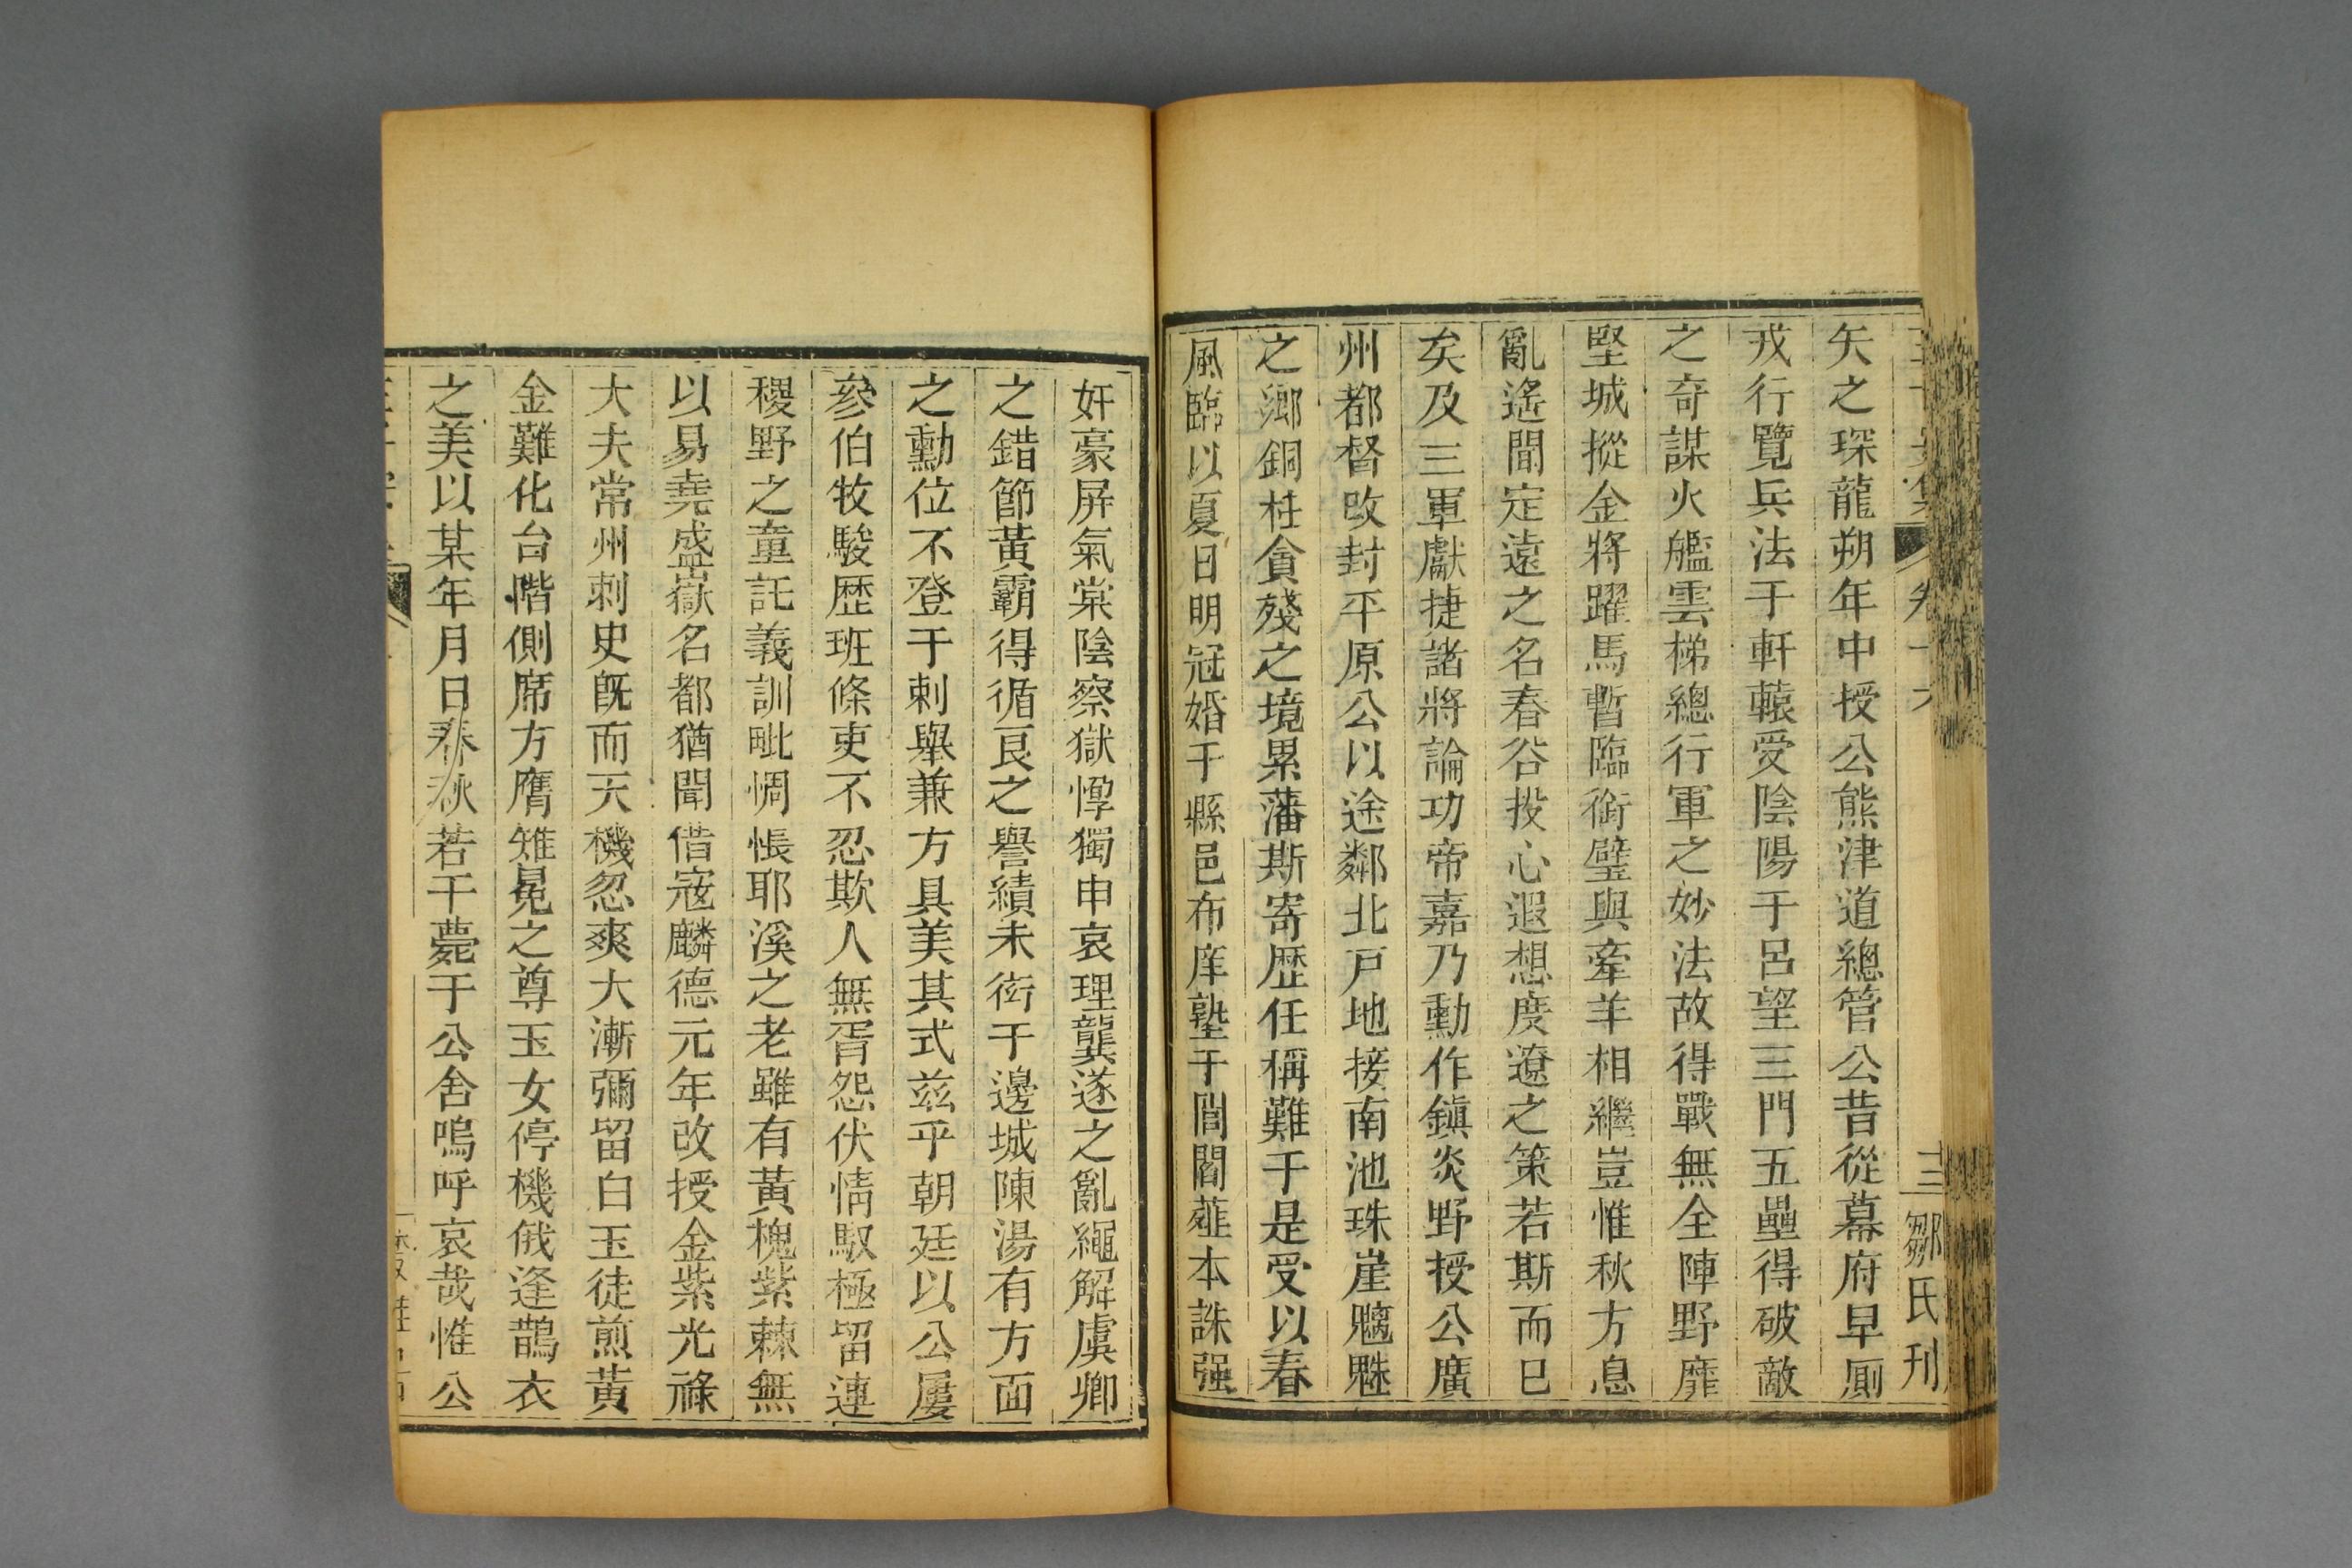 矢之琛龍朔年中授公熊津道總管公昔從幕府早厠
戎行覽兵法于軒轅受陰陽于呂望三門五壘得破敵
之奇謀火艦雲梯總行軍之妙法故得戰無全陣野靡
堅城摐金將躍馬暫臨銜璧與牽羊相繼豈惟秋方息
亂遙聞定遠之名春谷投心遐想度遼之策若斯而已
矣及三軍獻捷諸將論功帝嘉乃勳作鎮炎野授公廣
州都督改封平原公以途鄰北戸地接南池珠崖魑魅
之鄉銅柱貪殘之境累藩斯寄歴任稱難于是受以春
風臨以夏日明冠婚于縣邑布庠塾于閭閻薤本誅强
奸豪屏氣棠陰察獄惸獨申哀理龔遂之亂繩解虞卿
之錯節黃霸得循良之譽績未衒于邊城陳湯有方面
之勳位不登于刺舉兼方具美其式兹乎朝廷以公屢
參伯牧駿歴班條吏不忍欺人無胥怨伏情馭極留連
稷野之童託義訓毗惆悵耶溪之老雖有黃槐紫棘無
以易堯盛嶽名都猶聞借寇麟德元年改授金紫光祿
大夫常州刺史旣而天機忽爽大漸彌留白玉徒煎黃
金難化台階側席方膺雉冕之尊玉女停機俄逢鵲衣
之美以某年月日春秋若干薨于公舍嗚呼哀哉惟公
三鄒氏刊